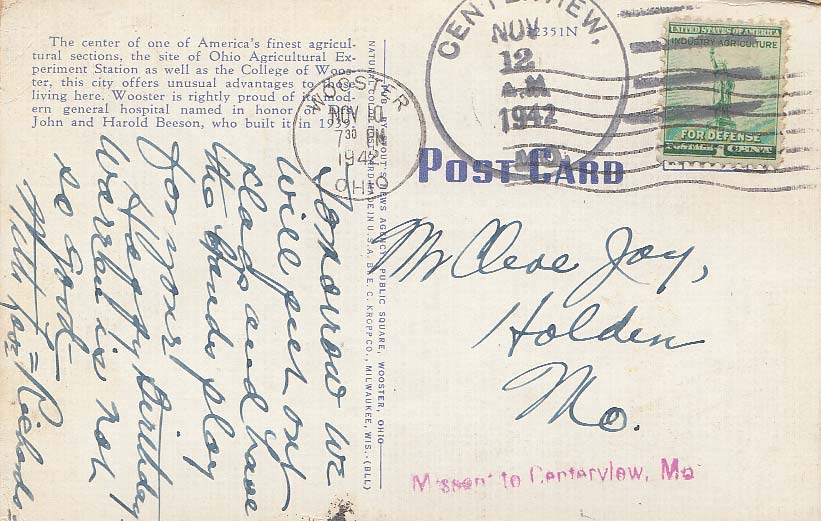 The center of one of America's finest agricul-
tural sections, the site of Ohio Agricultural Ex-
periment Station as well as the College of Woos-
ter, this city offers unusual advantages to those
living here. Wooster is rightly proud of its mod-
ern general hospital named in honor of
John and Harold Beeson, who built it in 193
Tomorrow we
will put out
flags and have
the bands play
for your
Happy Birthday
Warren is not
so good
With Love = Richards =
WOOSTER
NOV 10
7 30 PM
1942
OHIO
PUB. BY STOUT'S NEWS AGENCY, PUBLIC SQUARE, WOOSTER, OHIO
NATURAL COLOR POST CARD MADE IN U.S.A. BY E. C. KROPP CO., MILWAUKEE, WIS.-(BLL)
CENTERVIEW,
NOV
12
A.M
1942
MO.
32351N
UNITED STATES OF AMERICA
INDUSTRY AGRICULTURE
FOR DEFENSE
POSTAGE 1 CENT
POST CARD
Mr Cleve Joy,
Holden
Mo.
Missent to Centerview, Mo